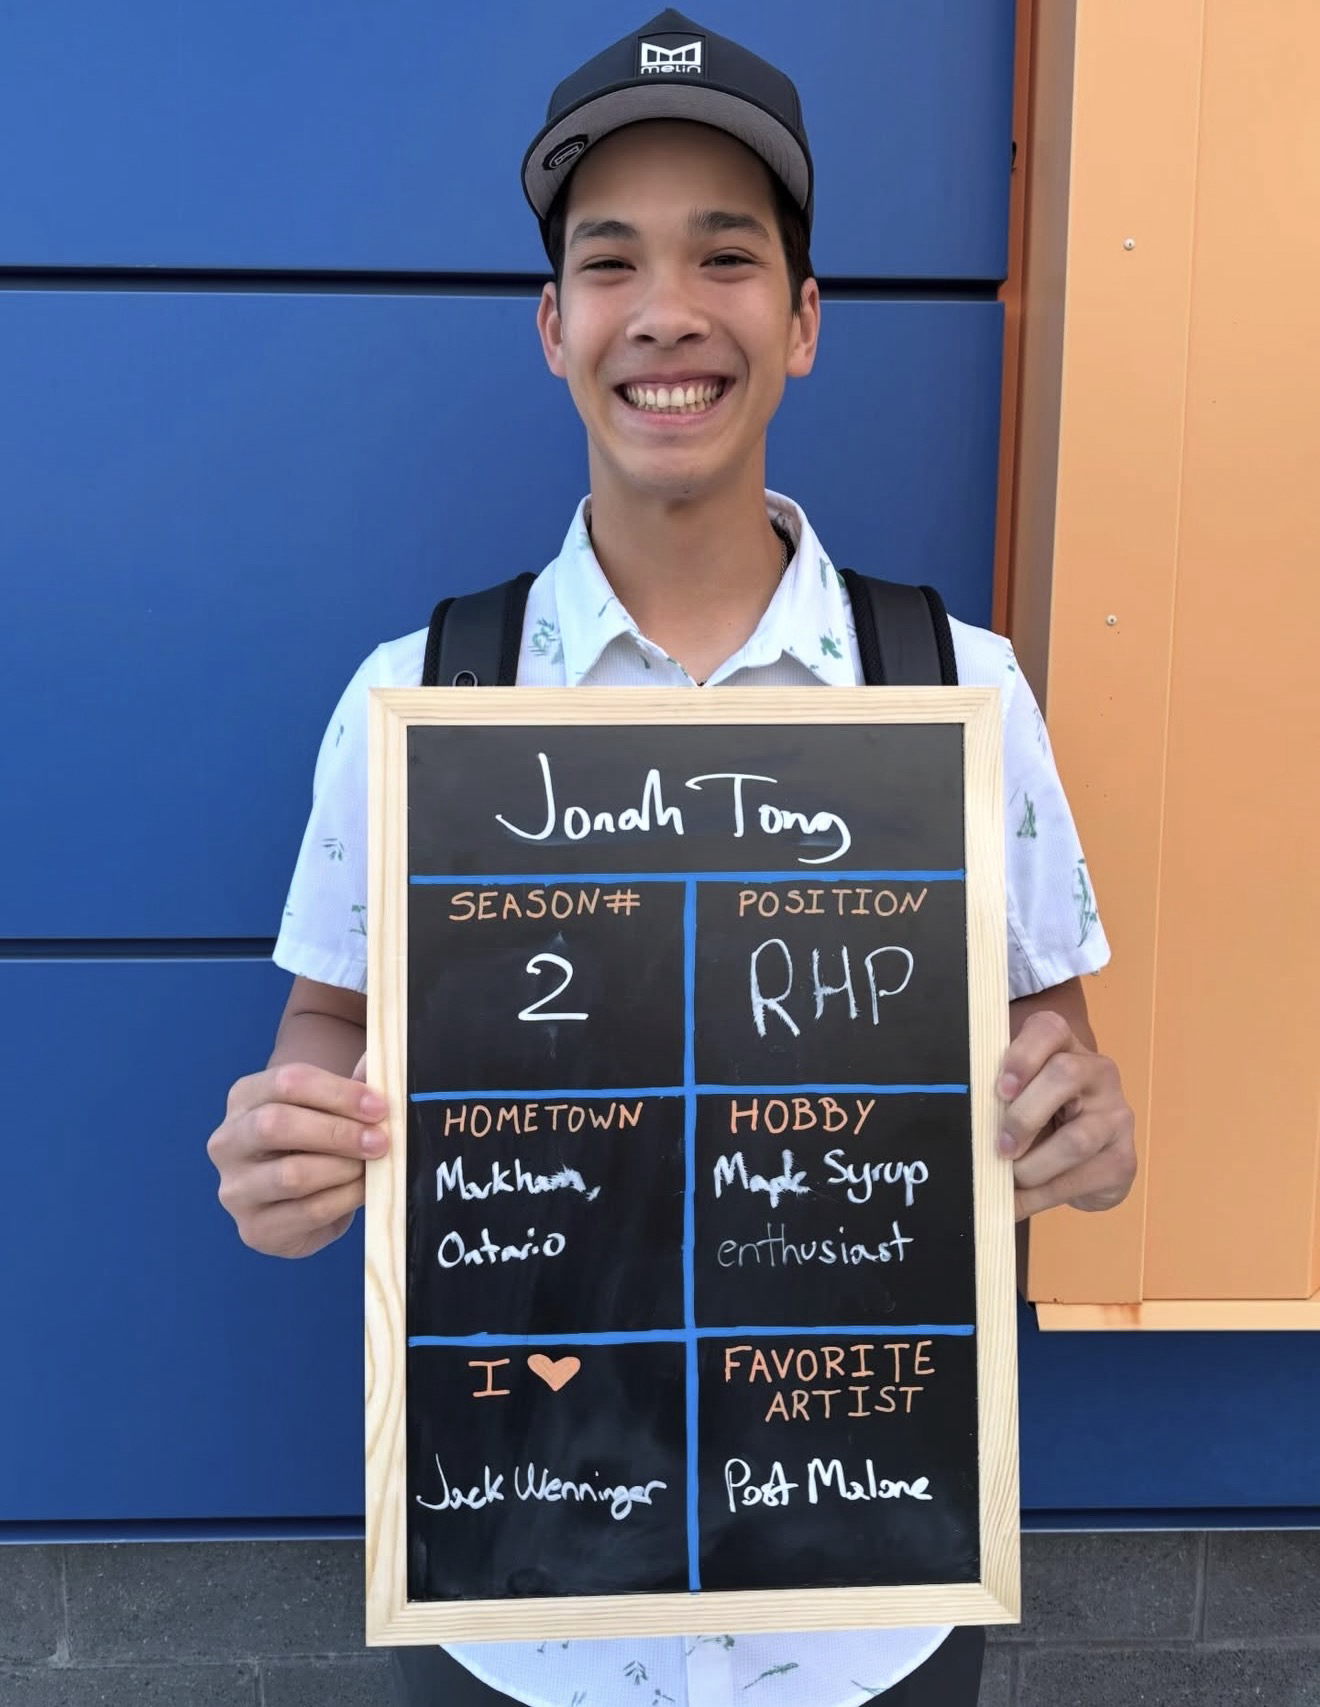 melin
Jonah Tong
SEASON# POSITION
2 RHP
HOMETOWN HOBBY
Markham, Maple Syrup
Ontario enthusiast
I ♥ FAVORITE
ARTIST
Jack Wenninger Post Malone